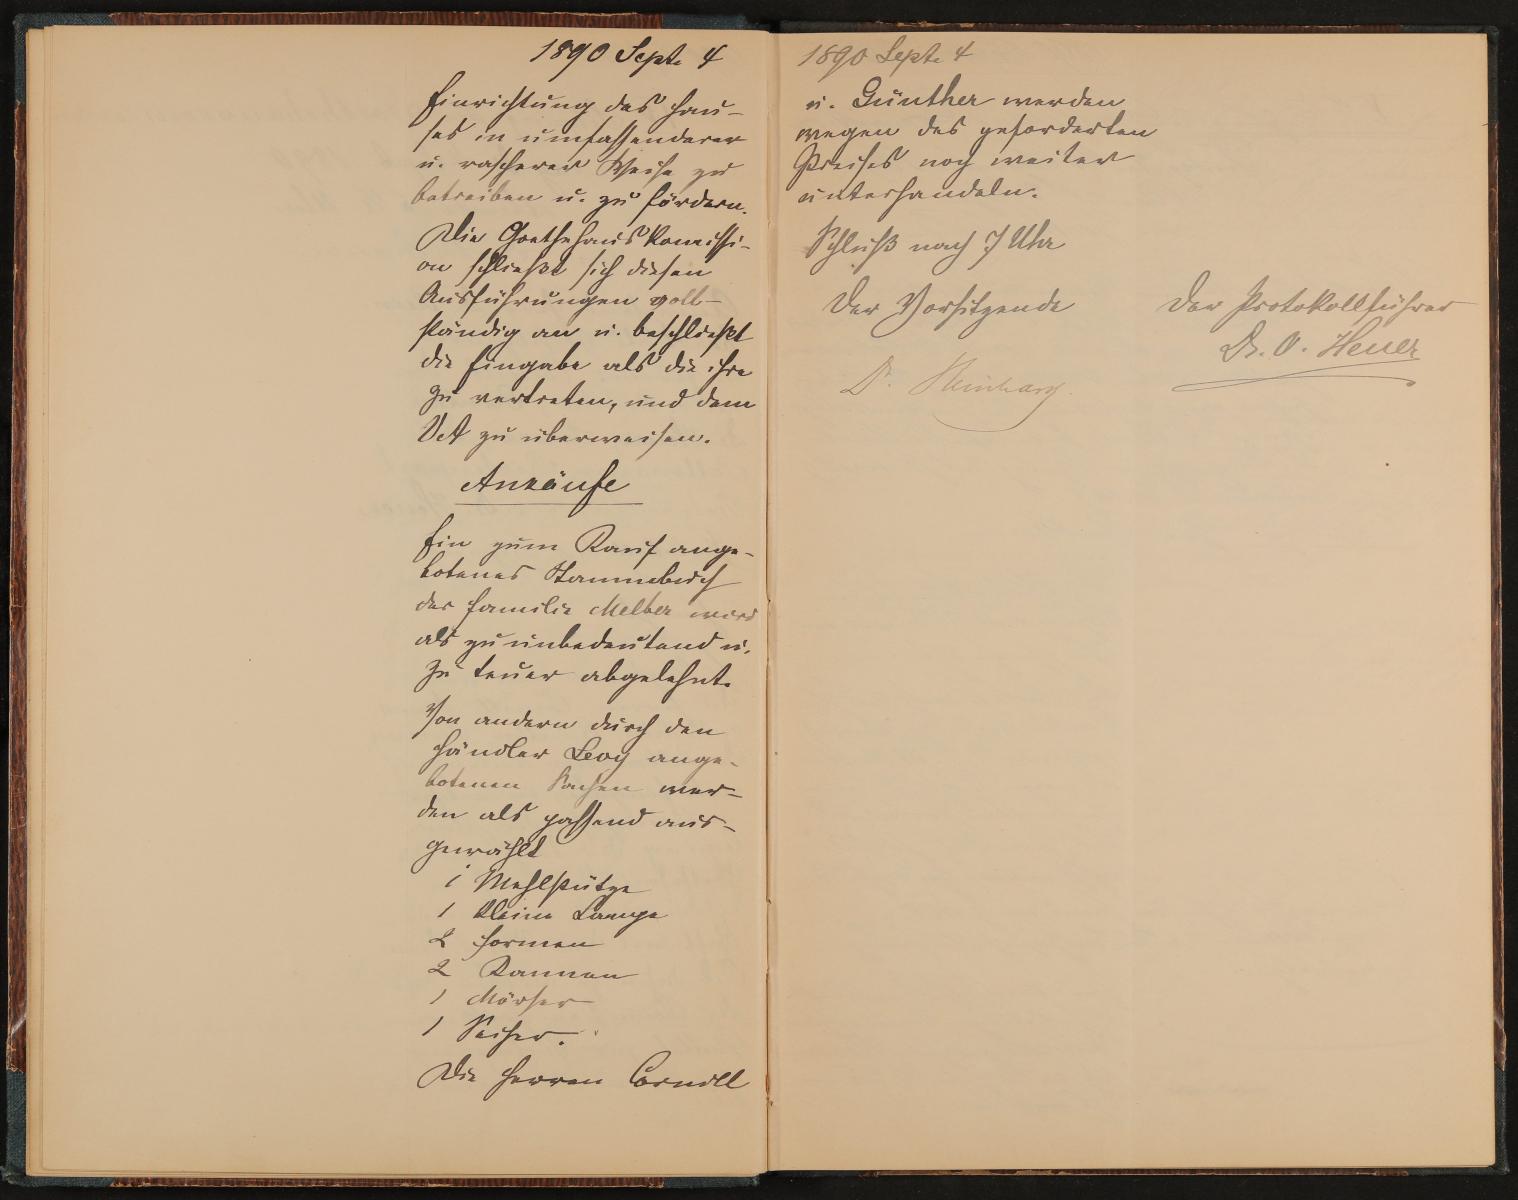 1890 Sept. 4
Einrichtung des Hau-
ses in umfassenderer
u. rascherer Weise zu
betreiben u. zu fördern.
Die Goethehauskomissi-
on schließt sich diesen
Ausführungen voll-
ständig an u. beschließt
die Eingabe als die ihre
zu vertreten, und dem
VA zu überweisen.
Ankäufe
Ein zum Kauf ange-
botenes Stammbuch
der Familie Melber wird
als zu unbedeutend u.
zu teuer abgelehnt.
Von andern durch den
Händler Levy ange-
botenen Sachen wer-
den als passend aus-
gewählt
1 Mehlstütze
1 kleine Lampe
2 Formen
2 Kannen
1 Mörser
1 Seiher.
Die Herren Cornill
1890 Sept. 4
u. Günther werden
wegen des geforderten
Preises noch weiter
unterhandeln.
Schluß nach 7 Uhr
Der Vorsitzende
Dr.
Der Protokollführer
Dr. O. Heuer